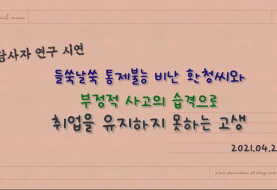 담사자 연구 시연
들쑥날쑥 통제불능 비난 환청씨와
부정적 사고의 습격으로
취업을 유지하지 못하는 고생
2021.04.2